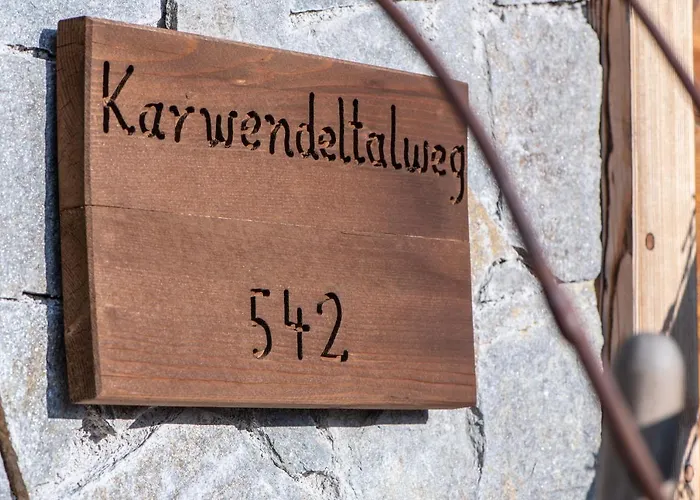 Karwendeltalweg
542